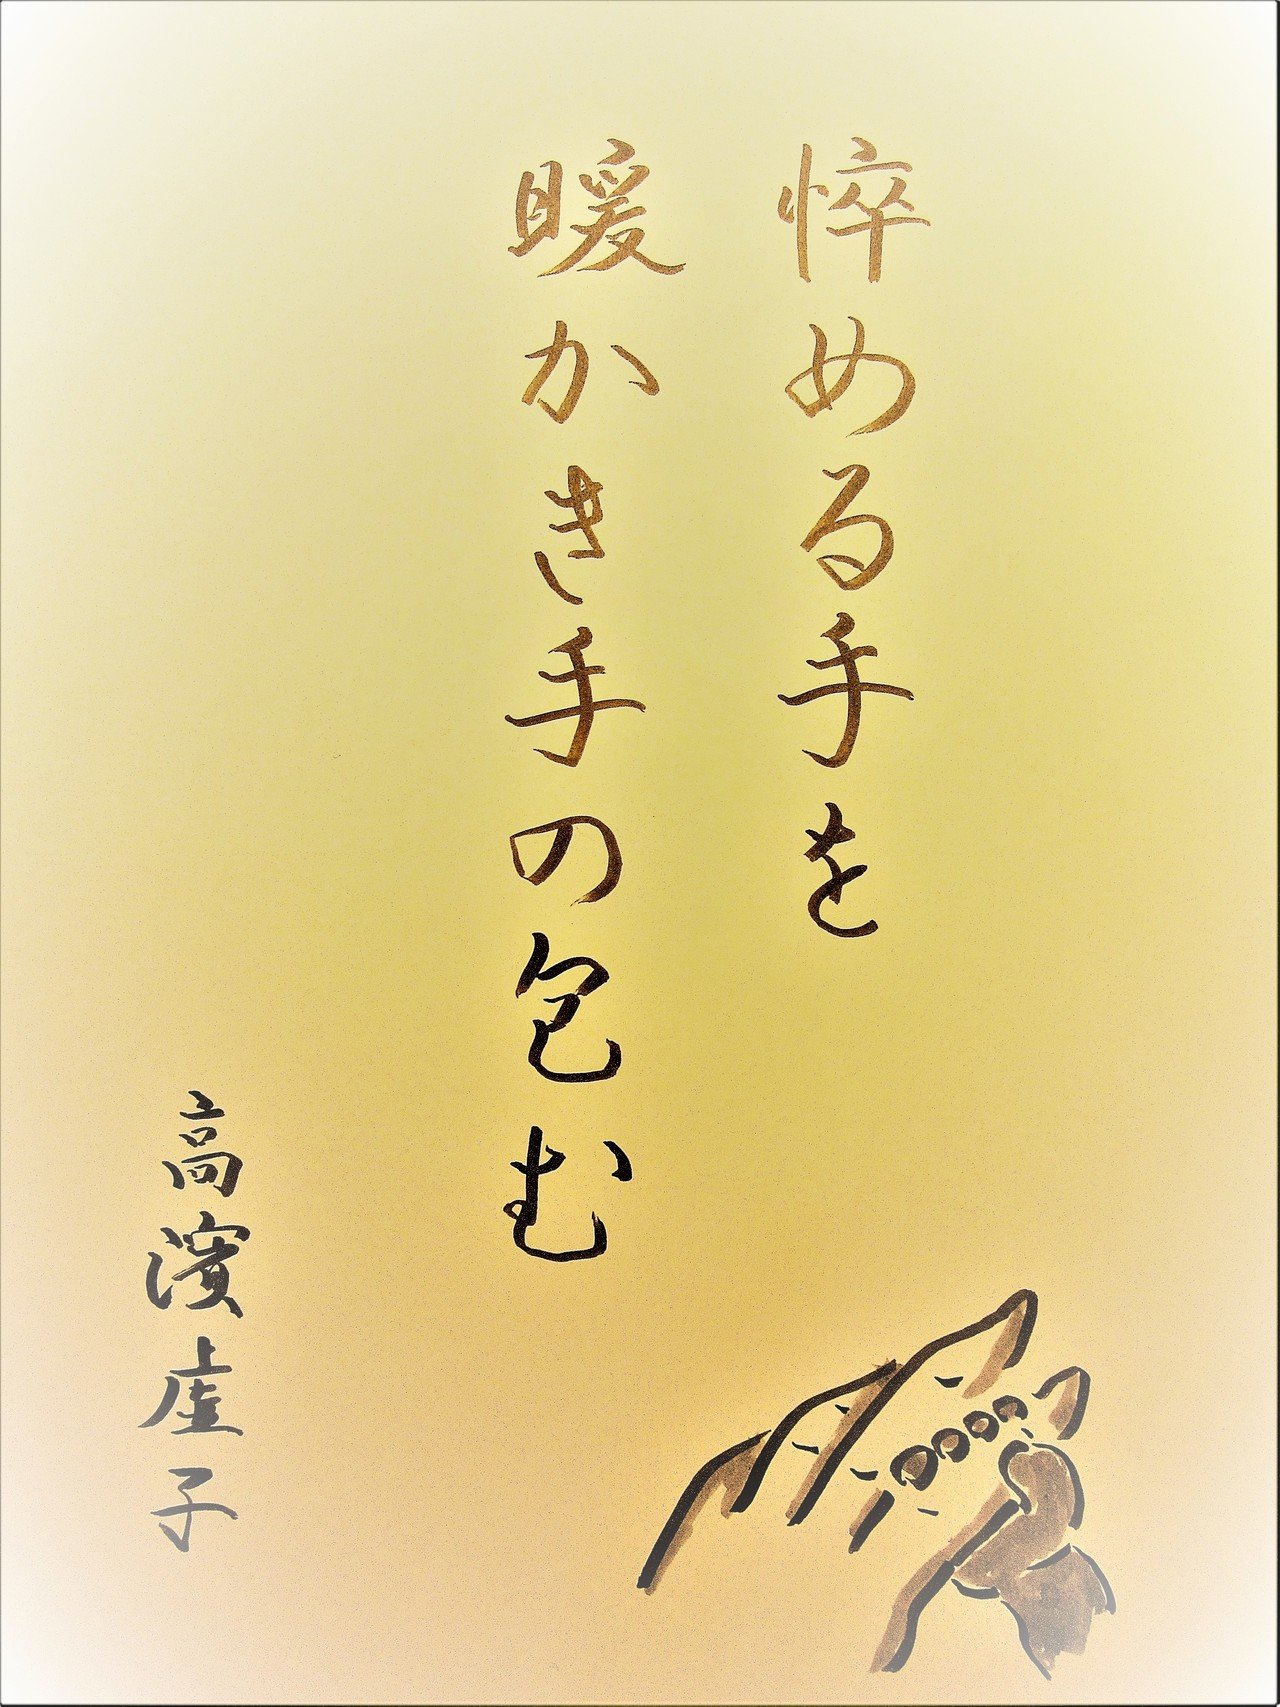 悴める手を
暖かき手の包む
高濱虚子